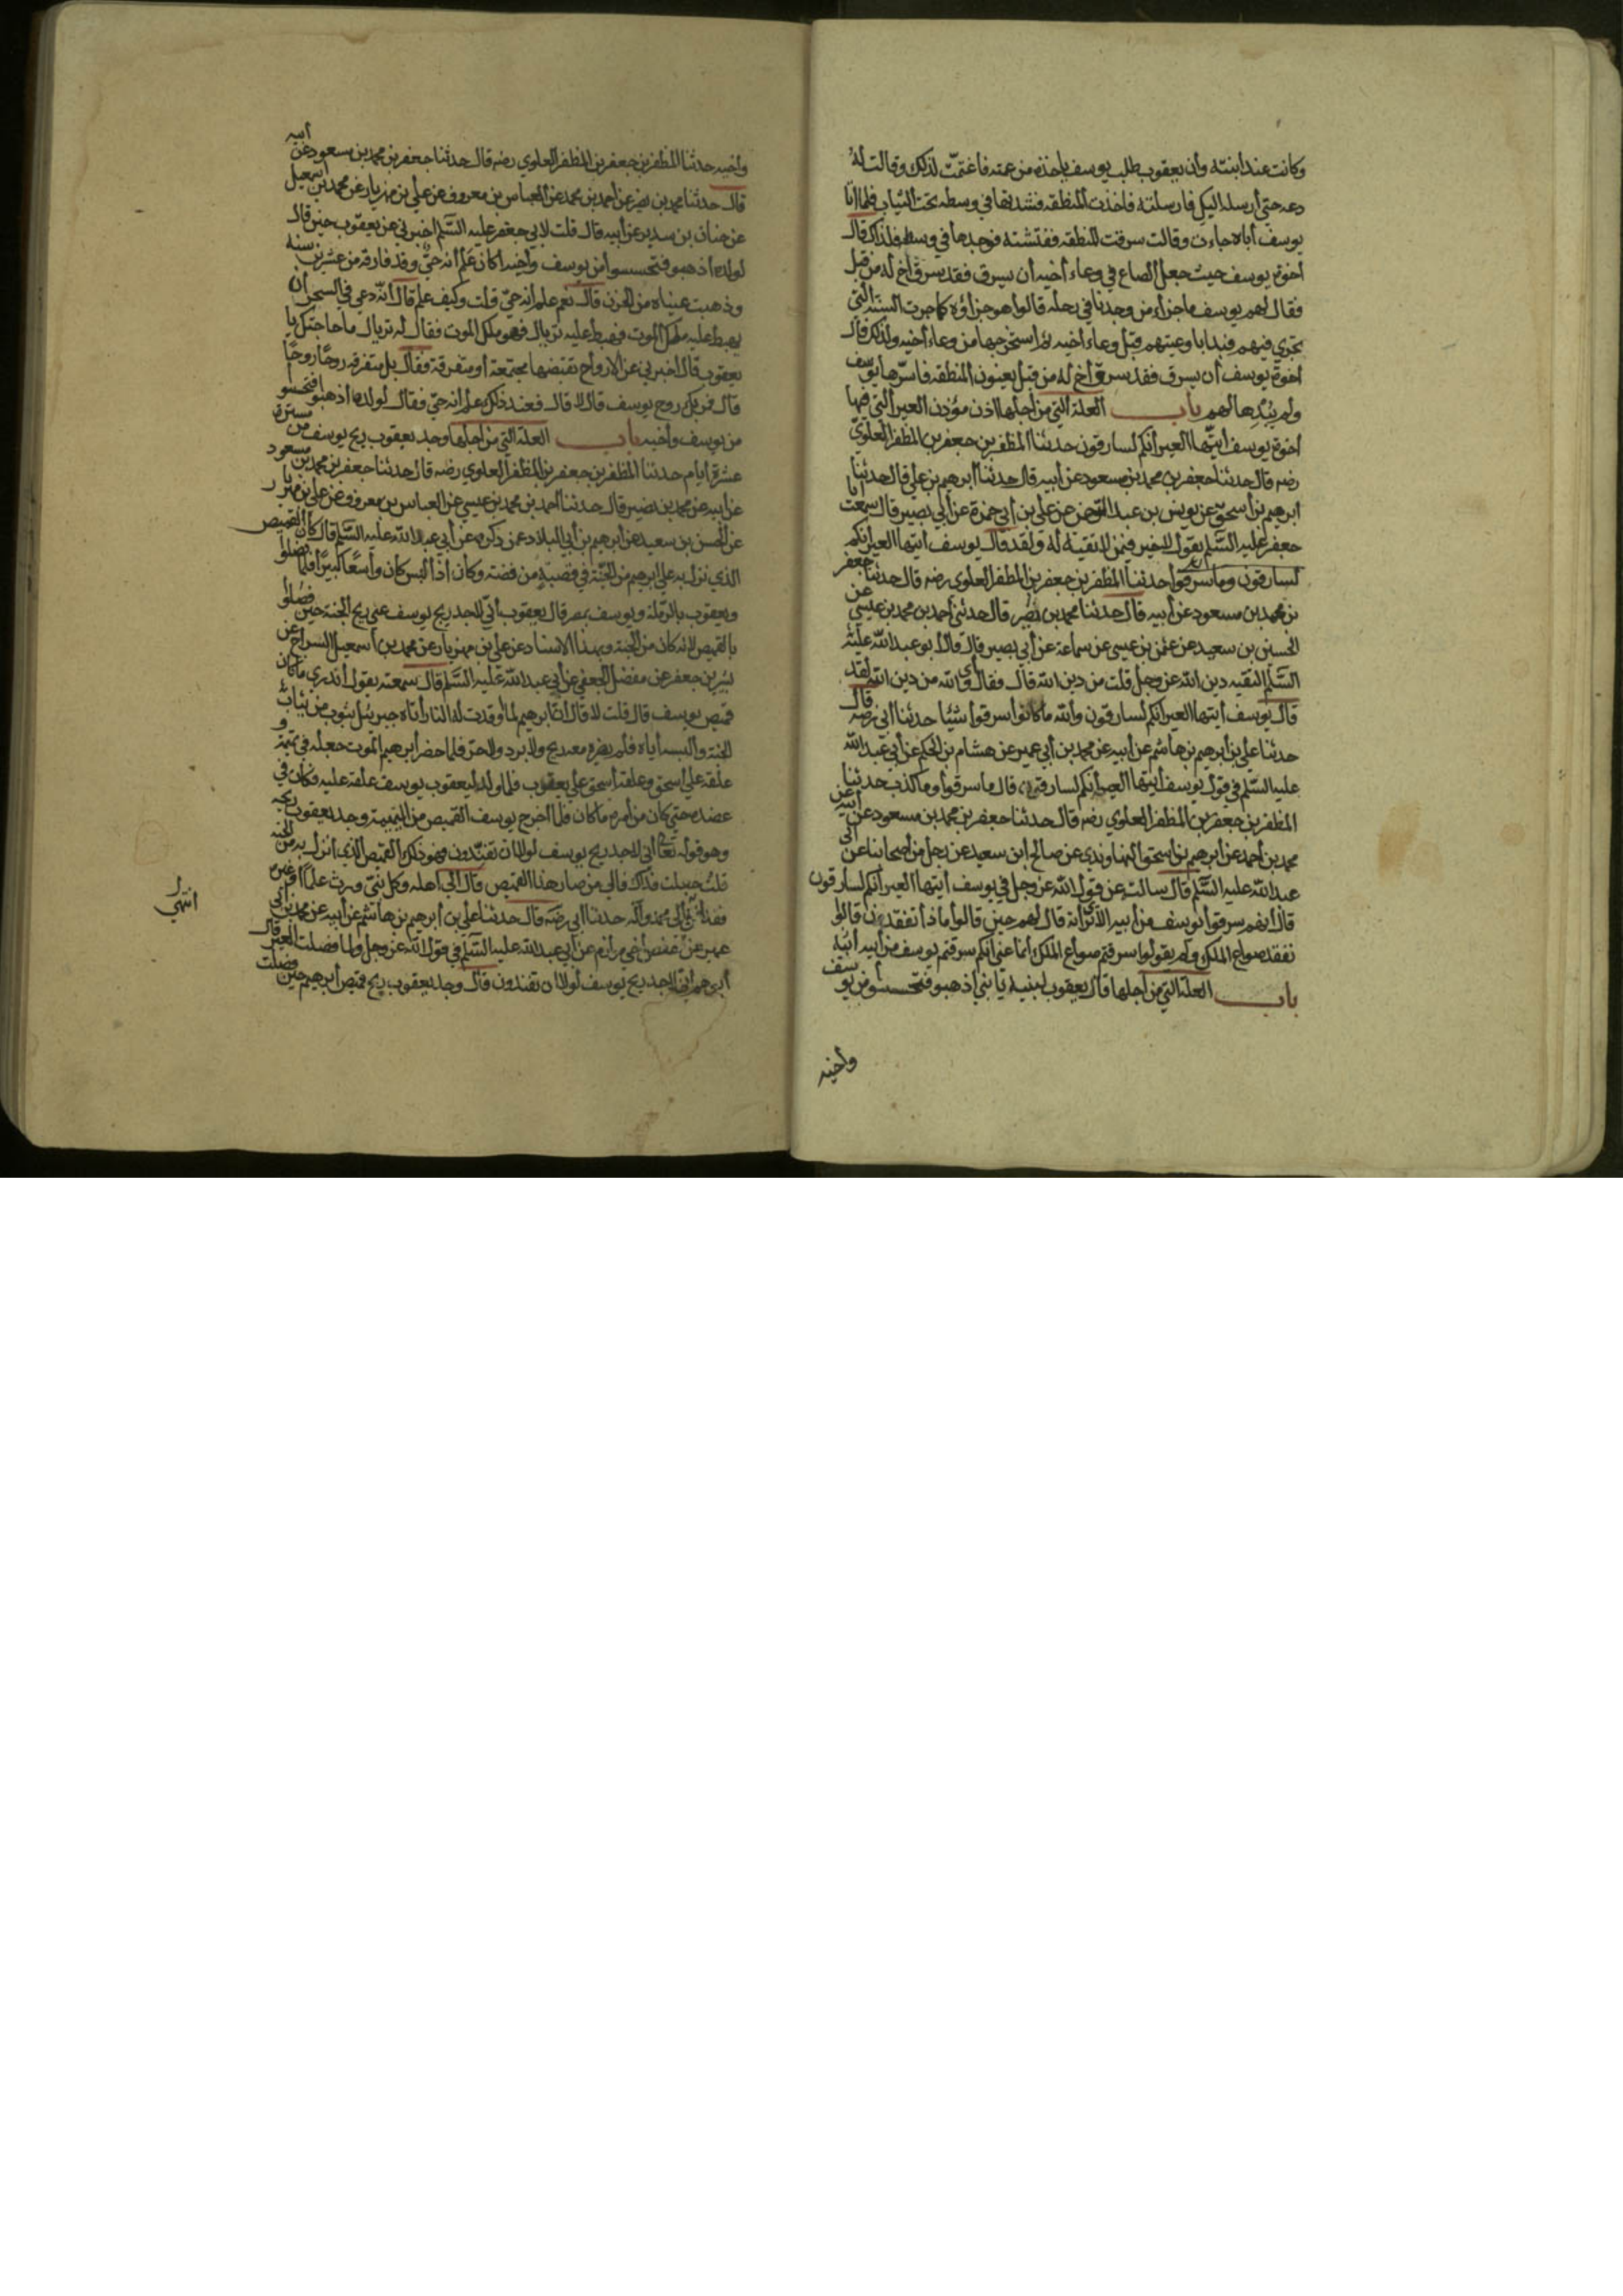 وكانت عند ابنته وان يعقوب طلب يوسف ياخذه من عمته فاغتمت لذلك وقالت له
دعه حتى أرسله اليك فارسلته فاخذت المنطقه فشدتها في وسطه تحت الثياب فلما اتا
يوسف أباه جاءت وقالت سرقت المنطقه ففتشته فوجدها في وسطه فلذلك قال
اخوة يوسف حيث جعل الصاع في وعاء أخيه أن يسرق فقد سرق أخ له من قبل
فقال لهم يوسف ماجزاء من وجدنا في رحله قالوا هو جزاؤه كما جرت السنه التي
تجري فيهم فبدا باوعيتهم قبل وعاء أخيه ثم استخرجها من وعاء أخيه ولذلك قال
اخوة يوسف أن يسرق فقد سرق أخ له من قبل يعنون المنطقه فاسرها يوسف
ولم يبدها لهم باب العلة التي من أجلها اذن مؤذن العير التي فيها
اخوة يوسف ايتها العير أنكم لسارقون حدثنا المظفر بن جعفر بن المظفر العلوي
رضه قال حدثنا جعفر بن محمد بن مسعود عن أبيه قال حدثنا ابرهيم بن علي قال حدثنا
ابرهيم بن أسحق عن يونس بن عبد الرحمن عن علي بن أبي حمزة عن أبي بصير قال سمعت أبا
جعفر عليه السلم يقول لاخير فيمن لاتقية له ولقد قال يوسف أيتها العير أنكم
لسارقون وما سرقوا حدثنا المظفر بن جعفر بن المظفر العلوي رضه قال حدثنا جعفر
بن محمد بن مسعود عن أبيه قال حدثنا محمد بن نصر قال حدثني أحمد بن محمد بن عيسي عن
الحسين بن سعيد عن عثمن بن عيسى عن سماعة عن أبي بصير قال قال أبو عبد الله عليه
السلم التقيه دين الله عز وجل قلت من دين الله قال فقال أي والله من دين الله لقد
قال يوسف أيتها العير أنكم لسارقون والله ما كانوا سرقوا شيئا حدثنا ابي رضه قال
حدثنا علي بن أبرهيم بن هاشم عن أبيه عن محمد بن أبي عمير عن هشام بن الحكم عن أبي عبد الله
عليه السلم في قول يوسف أيتها العير أنكم لسارقون قال ما سرقوا وما كذب حدثنا
المظفر بن جعفر بن المظفر العلوي رضه قال حدثنا جعفر بن محمد بن مسعود عن أبيه عن
محمد بن أحمد عن ابرهيم بن اسحق النهاوندي عن صالح ابن سعيد عن رجل من أصحابنا عن أبي
عبد الله عليه السلم قال سالت عن قول الله عز وجل في يوسف أيتها العير أنكم لسارقون
قال أنهم سرقوا يوسف من أبيه الا ترى انه قال لهم حين قالوا ماذا تفقدون قالوا
نفقد صواع الملك ولم يقولوا سرقتم صواع الملك أنما عني أنكم سرقتم يوسف من أبيه
باب العلة التي من أجلها قال يعقوب لبنيه يابني أذهبو فتحسسوا من يوسف
وأخيه
وأخيه حدثنا المظفر بن جعفر بن المظفر العلوي رضه قال حدثنا جعفر بن محمد بن مسعود عن أبيه
قال حدثنا محمد بن نصر عن أحمد بن محمد عن العباس بن معروف عن علي بن مهزيار عن محمد بن اسمعيل
عن حنان بن سدير عن أبيه قال قلت لابي جعفر عليه السلم اخبرني عن يعقوب حين قال
لولده أذهبو فتحسسوا من يوسف وأخيه أكان علم أنه حي وقد فارقه من عشرين سنه
وذهبت عيناه من الحزن قال نعم علم أنه حي قلت وكيف علم قال أنه دعي في السحر أن
يهبط عليه ملك الموت فهبط عليه تريال فهو ملك الموت فقال له تريال ما حاجتك يا
يعقوب قال أخبرني عن الارواح تقبضها مجتمعة أو متفرقة فقال بل متفرقه روحا روحا
قال فمر بك روح يوسف قال لا قال فعند ذلك علم أنه حي فقال لولده أذهبوا فتحسسو
من يوسف وأخيه باب العلة التي من أجلها وجد يعقوب ريح يوسف من مسيرة
عشرة أيام حدثنا المظفر بن جعفر بن المظفر العلوي رضه قال حدثنا جعفر بن محمد بن مسعود
عن أبيه عن محمد بن نصير قال حدثنا أحمد بن محمد بن عيسي عن العباس بن معروف عن علي بن مهزيار
عن الحسن بن سعيد عن أبرهيم بن أبي البلاد عمن ذكره عن أبي عبد الله عليه السلم قال كان القميص
الذي نزل به علي ابرهيم من الجنة في قصبة من فضة وكان أذا لبس كان وأسعا كبيرا فلما فصلوا
ويعقوب بالرملة ويوسف بمصر قال يعقوب أني لاجد ريح يوسف عني ريح الجنة حين فصلوا
بالقميص لانه كان من الجنة وبهذا الاسناد عن علي بن مهزيار عن محمد بن أسمعيل السراج عن
بشر بن جعفر عن مفضل الجعفي عن أبي عبد الله عليه السلم قال سمعته يقول أتدري ما كان
قميص يوسف قال قلت لا قال أن أبرهيم لما أوقدت له النار أتاه جبرئيل بثوب من ثياب
الجنة والبسه أياه فلم يضره معه ريح ولا برد ولا حر فلما حضر أبرهيم الموت جعله في تميمة و
علقه علي أسحق وعلقه أسحق علي يعقوب فلما ولد ليعقوب يوسف علقه عليه فكان في
عضده حتي كان من أمره ما كان فلما أخرج يوسف القميص من التميمة وجد يعقوب ريحه
وهو قوله تعا أني لاجد ريح يوسف لولا ان تفندون فهو ذلك القميص الذي أنزل به من الجنه
قلت جعلت فداك فالي من صار هذا القميص قال الي أهله وكل نبي ورث علما أو غيره
فقد أنتهي الي محمد وآله حدثنا ابي رضه قال حدثنا علي بن أبرهيم بن هاشم عن أبيه عن محمد بن أبي
عمير عن حفص أخي مرازم عن أبي عبد الله عليه السلم في قول الله عز وجل ولما فصلت العير قال
أبوهم أني لاجد ريح يوسف لولا ان تفندون قال وجد يعقوب ريح قميص أبرهيم حين فصلت